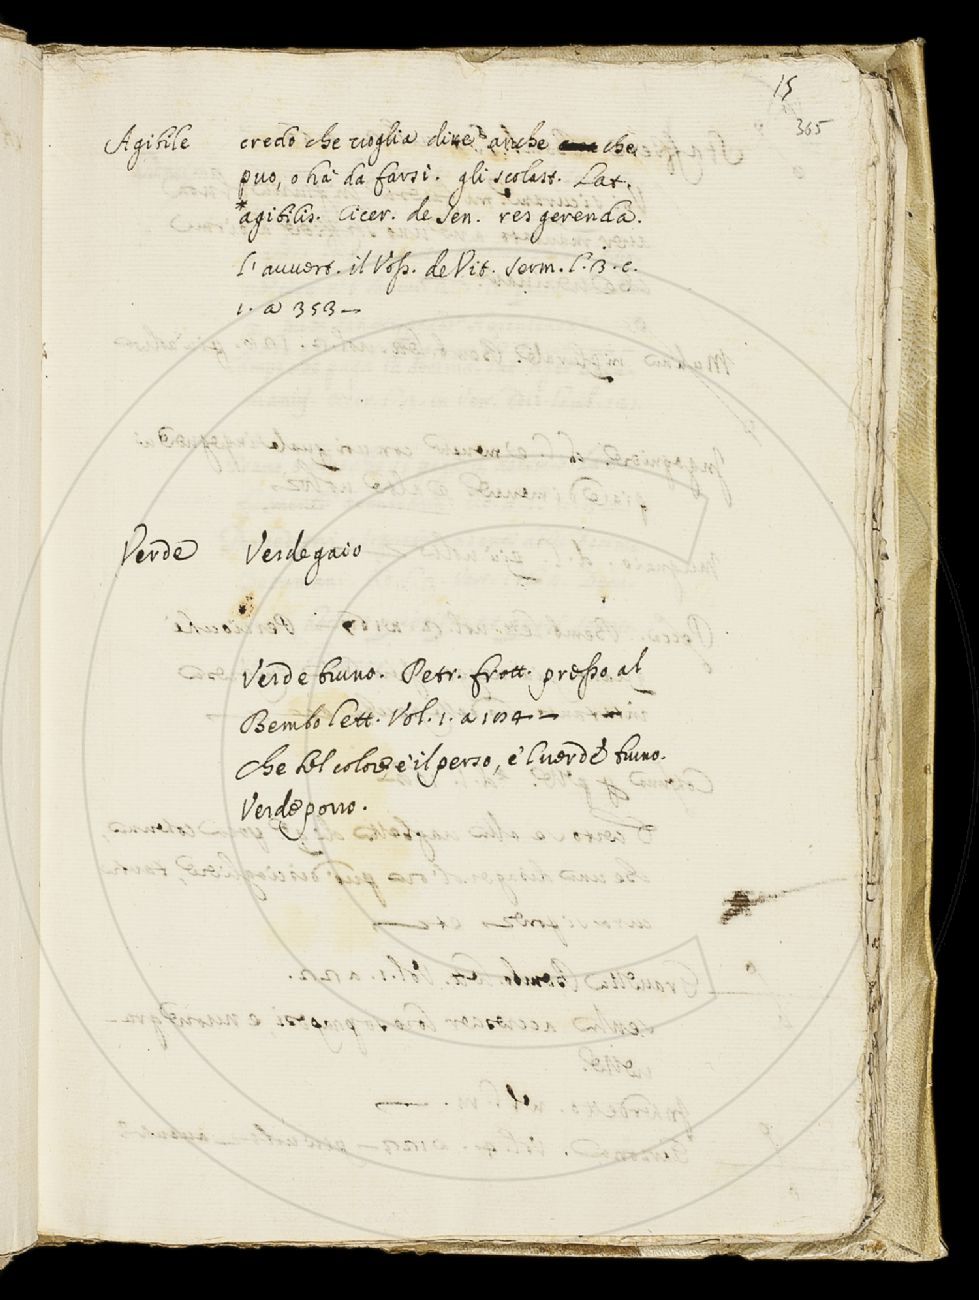 15
365
Agibile credo che voglia dire anche che
puo, o hà da farsi. gli scolast. Lat.
*agibilis. Cicer. de Sen. res gerenda.
l'avvert. il Voss. de Vit. Serm. l. 3. c.
1. a 353—
Verde Verdegaio
Verde bruno. Petr. frott. presso al
Bembo lett. Vol. 1. a 104—
che bel colore è il perso, e 'l verdè bruno.
Verdeporro.